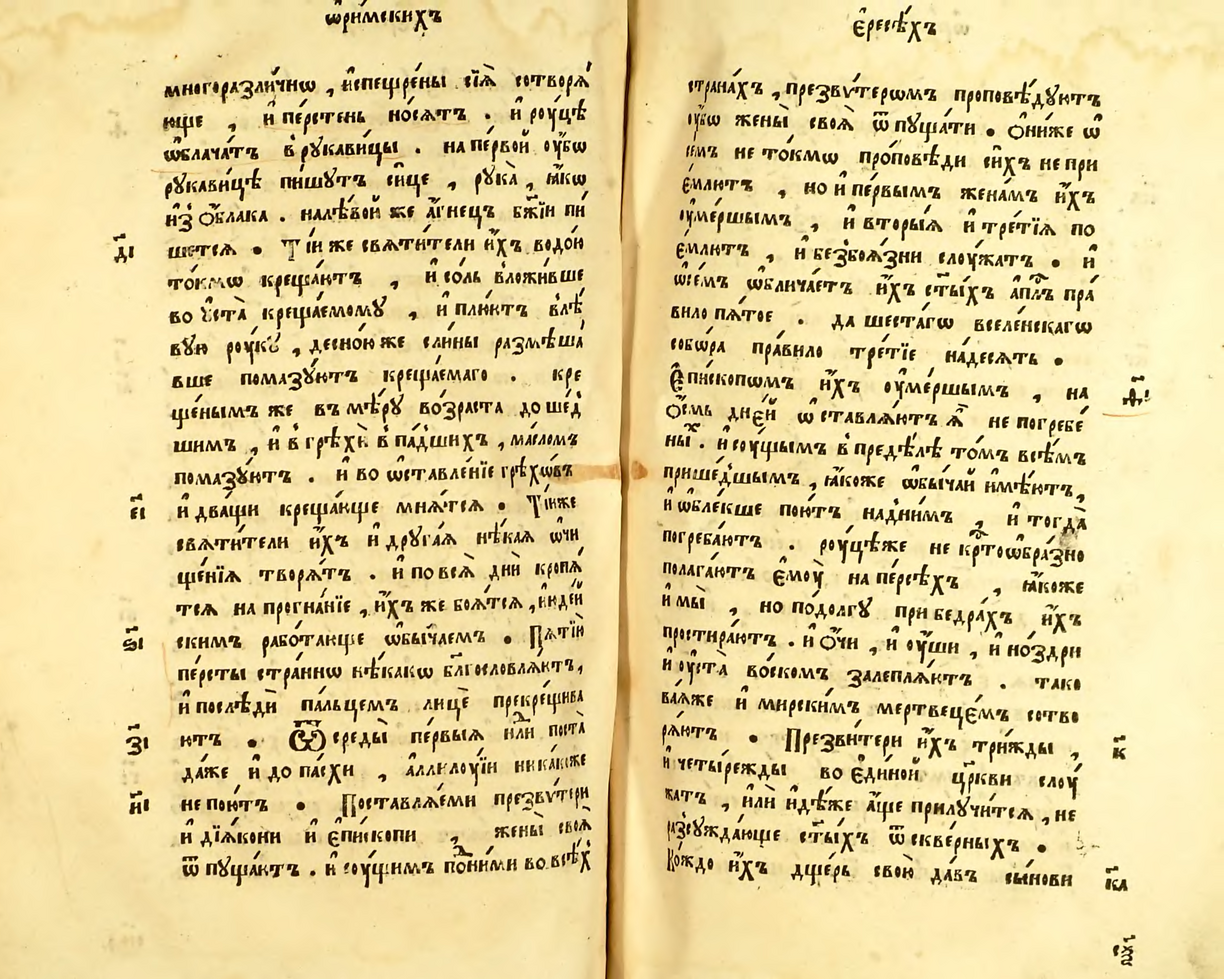 ѡ҆ри́мскихъ
многоразли́чнѡ , и҆спещре́ны сїѧ̀ сотворѧ́
юще , и҆ пе́рстень но́сѧтъ . и҆ роуцѣ
ѡ҆блача́тъ в рукави́цы . на пе́рвой оу҆́бѡ
рукави́цѣ пи́шутъ си́це , рука̀ , ꙗ҆́кѡ
и҆з̾ ѻ҆́блака . на лѣ́вой же а҆́гнецъ бж҃їи пи́
дı҃
шетсѧ . Ті́и же свѧти́тели и҆́хъ водо́ю
то́кмѡ креща́ютъ , и҆ со́ль вложи́вше
во оу҆ста̀ креща́емому , и҆ плю́ютъ в лѣ́
вую ро́уку , десно́ю же сли́ны размѣша́
вше помазу́ютъ креща́емаго . кре
ще́нымъ же въ мѣ́ру во́зраста доше́д
шимъ , и҆ в грѣхѝ впа́дшихъ , ма́сломъ
помазу́ютъ . и҆ во ѡ҆ставле́нїе грѣхѡ́въ
єı҃
и҆ два́щи креща́юще мнѧ́тсѧ . Ті́иже
свѧти́тели и҆́хъ и҆ друга́ѧ нѣ́каѧ ѡ҆чи
ще́нїѧ творѧ́тъ . и҆ по всѧ̀ дни̑ кропѧ́
тсѧ на прогна́нїе , и҆́хъ же боѧ́тсѧ , и҆юде́и
ѕı҃
скимъ рабо́тающе ѡ҆бы́чаемъ . Пѧті́й
пе́рсты стра́ннѡ нѣ́какѡ бл҃гословлѧ́ютъ,
и҆ послѣди́ па́льцемъ лицѐ прекре́щива
зı҃
ютъ . Ѿ среды̀ пе́рвыѧ и҆лѝ поста̀
да́же и҆ до па́схи , а҆ллилоу́їи ника́коже
иı҃
не пою́тъ . Поставлѧ́еми презвѵ́тери
и҆ дїѧ́кони и҆ є҆пи́скопи , жены̀ своѧ̀
ѿ пуща́ютъ . и҆ соу́щимъ по ни́ми во всѣ́х
є҆́ресѣхъ
страна́хъ , презвѵ́терѡмъ проповѣ́дуютъ
оу҆́бѡ жены̀ своѧ̀ ѿ пуща́ти . Ѻ҆ни́же ѡ҆
се́мъ не то́кмѡ про́повѣди си́хъ не при
е́млютъ , но и҆ пе́рвымъ жена́мъ и҆́хъ
оу҆ме́ршымъ , и҆ вторы́ѧ и҆ тре́тїѧ по
е́млютъ , и҆ без̾боѧ́зни слоу́жатъ . и҆
ѡ҆ се́мъ ѡ҆блича́етъ и҆́хъ ст҃ы́хъ а҆пл҃ъ пра́
вило пѧ́тое . да шеста́гѡ вселе́нскагѡ
собѡ́ра пра́вило тре́тїе на́десѧть .
дı҃
Є҆пи́скопѡмъ и҆́хъ оу҆ме́ршымъ , на
ѻ҆́смь дне́й ѡ҆ ставлѧ́ютъ ѧ҆̀ не погребе́
ны̀х . и҆ соу́щымъ в преде́лѣ то́мъ всѣ́мъ
прише́дшымъ , ꙗ҆́коже ѡ҆бы́чай и҆мѣ́ютъ,
и҆ ѡ҆бле́кше пою́тъ над ни́мъ , и҆ тогда̀
погреба́ютъ . роуцѣ́же не кр҃тоѡбра́зно
полага́ютъ є҆моу̀ на пе́рсѣхъ , ꙗ҆́коже
и҆ мы̀ , но подо́лгу при бедра́хъ и҆́хъ
простира́ютъ . и҆ ѻ҆́чи , и҆ оу҆́ши , и҆ но́здри
и҆ оу҆ста̀ во́скомъ залеплѧ́ютъ . тако
ва́ѧже и҆ мирски́мъ мертвеце́мъ сотво
рѧ́ютъ . Презви́тери и҆́хъ три́жды ,
к҃
и҆ четы́режды во є҆ди́ной цр҃кви слоу́
жатъ , и҆лѝ и҆дѣ́же а҆́ще прилучи́тсѧ , не
разсужда́юще ст҃ы́хъ ѿ скве́рныхъ .
Ко́ждо и҆́хъ дще́рь свою̀ да́въ сы́нови
к҃а